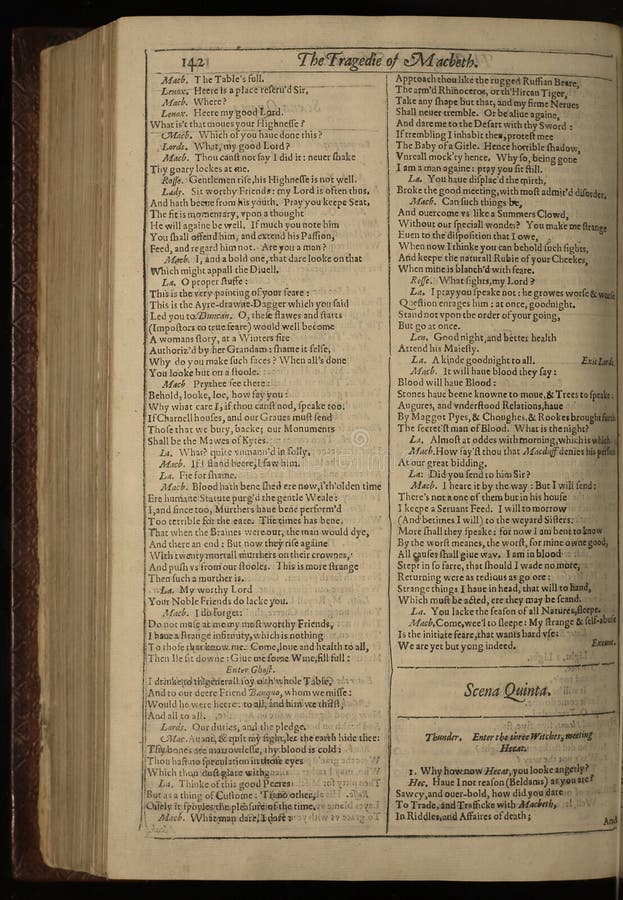 142 The Tragedie of Macbeth.
Macb. The Table's full.
Lenox. Heere is a place reseru'd Sir.
Macb. Where?
Lenox. Heere my good Lord.
What is't that moues your Highnesse?
Macb. Which of you haue done this?
Lords. What, my good Lord?
Macb. Thou canst not say I did it: neuer shake
Thy goary lockes at me.
Rosse. Gentlemen rise, his Highnesse is not well.
Lady. Sit worthy Friends: my Lord is often thus,
And hath beene from his youth. Pray you keepe Seat,
The fit is momentary, vpon a thought
He will againe be well. If much you note him
You shall offend him, and extend his Passion,
Feed, and regard him not. Are you a man?
Macb. I, and a bold one, that dare looke on that
Which might appall the Diuell.
La. O proper stuffe:
This is the very painting of your feare:
This is the Ayre-drawne-Dagger which you said
Led you to Duncan. O, these flawes and starts
(Impostors to true feare) would well become
A womans story, at a Winters fire
Authoriz'd by her Grandam: shame it selfe,
Why do you make such faces? When all's done
You looke but on a stoole.
Macb. Prythee see there:
Behold, looke, loe, how say you:
Why what care I, if thou canst nod, speake too.
If Charnell houses, and our Graues must send
Those that we bury, backe; our Monuments
Shall be the Mawes of Kytes.
La. What? quite vnmann'd in folly.
Macb. If I stand heere, I saw him.
La. Fie for shame.
Macb. Blood hath bene shed ere now, i'th'olden time
Ere humane Statute purg'd the gentle Weale:
I, and since too, Murthers haue bene perform'd
Too terrible for the eare. The times has bene,
That when the Braines were out, the man would dye,
And there an end: But now they rise againe
With twenty mortall murthers on their crownes,
And push vs from our stooles. This is more strange
Then such a murther is.
La. My worthy Lord
Your Noble Friends do lacke you.
Macb. I do forget:
Do not muse at me my most worthy Friends,
I haue a strange infirmity, which is nothing
To those that know me. Come, loue and health to all,
Then Ile sit downe: Giue me some Wine, fill full:
Enter Ghost.
I drinke to th'generall ioy o'th'whole Table,
And to our deere Friend Banquo, whom we misse:
Would he were heere: to all, and him we thirst,
And all to all.
Lords. Our duties, and the pledge.
Mac. Auant, & quit my sight, let the earth hide thee:
Thy bones are marrowlesse, thy blood is cold:
Thou hast no speculation in those eyes
Which thou dost glare with.
La. Thinke of this good Peeres
But as a thing of Custome: 'Tis no other,
Onely it spoyles the pleasure of the time.
Macb. What man dare, I dare:
Approach thou like the rugged Russian Beare,
The arm'd Rhinoceros, or th'Hircan Tiger,
Take any shape but that, and my firme Nerues
Shall neuer tremble. Or be aliue againe,
And dare me to the Desart with thy Sword:
If trembling I inhabit then, protest mee
The Baby of a Girle. Hence horrible shadow,
Vnreall mock'ry hence. Why so, being gone
I am a man againe: pray you sit still.
La. You haue displac'd the mirth,
Broke the good meeting, with most admir'd disorder.
Macb. Can such things be,
And ouercome vs like a Summers Clowd,
Without our speciall wonder? You make me strange
Euen to the disposition that I owe,
When now I thinke you can behold such sights,
And keepe the naturall Rubie of your Cheekes,
When mine is blanch'd with feare.
Rosse. What sights, my Lord?
La. I pray you speake not: he growes worse & worse
Question enrages him: at once, goodnight.
Stand not vpon the order of your going,
But go at once.
Len. Good night, and better health
Attend his Maiesty.
La. A kinde goodnight to all. Exit Lords.
Macb. It will haue blood they say:
Blood will haue Blood:
Stones haue beene knowne to moue, & Trees to speake:
Augures, and vnderstood Relations, haue
By Maggot Pyes, & Choughes, & Rookes brought forth
The secret'st man of Blood. What is the night?
La. Almost at oddes with morning, which is which.
Macb. How say'st thou that Macduff denies his person
At our great bidding.
La: Did you send to him Sir?
Macb. I heare it by the way: But I will send:
There's not a one of them but in his house
I keepe a Seruant Feed. I will to morrow
(And betimes I will) to the weyard Sisters.
More shall they speake: for now I am bent to know
By the worst meanes, the worst, for mine owne good,
All causes shall giue way. I am in blood
Stept in so farre, that should I wade no more,
Returning were as tedious as go ore:
Strange things I haue in head, that will to hand,
Which must be acted, ere they may be scand.
La. You lacke the season of all Natures, sleepe.
Macb. Come, wee'l to sleepe: My strange & self-abuse
Is the initiate feare, that wants hard vse:
We are yet but yong indeed. Exeunt.
Scena Quinta.
Thunder. Enter the three Witches, meeting
Hecat.
1. Why how now Hecat, you looke angerly?
Hec. Haue I not reason (Beldams) as you are?
Sawcy, and ouer-bold, how did you dare
To Trade, and Trafficke with Macbeth,
In Riddles, and Affaires of death;
And
dreamstime